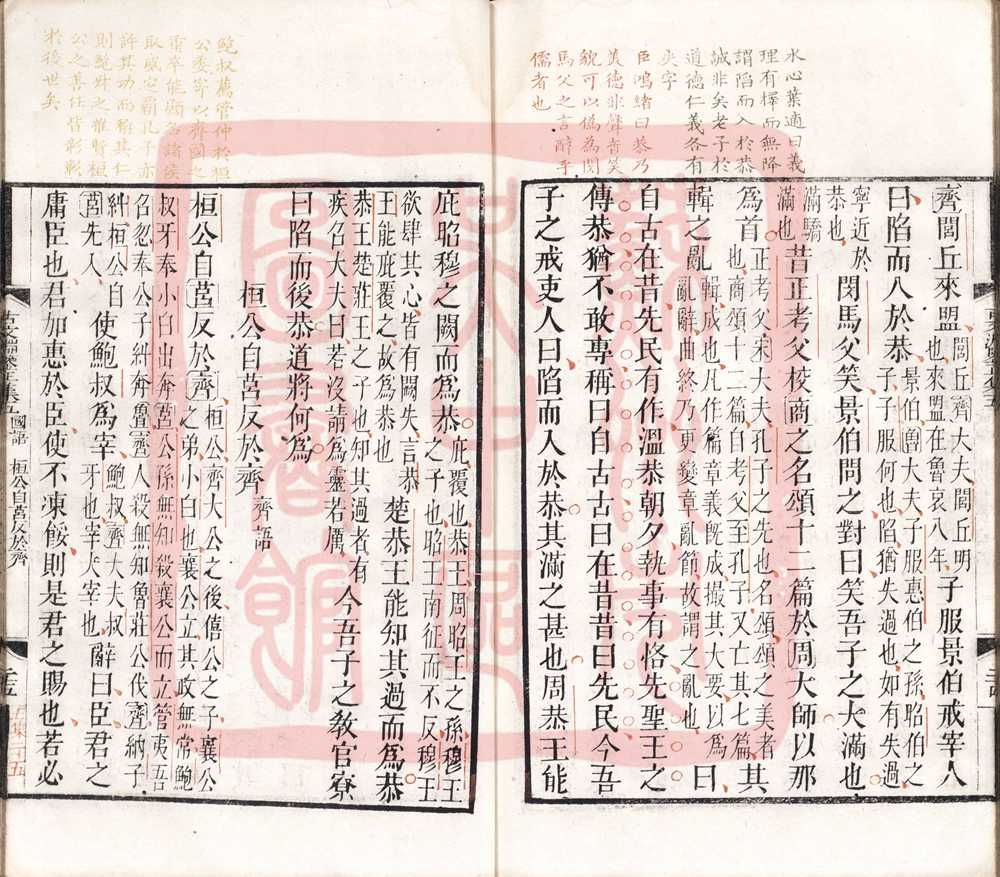 水心葉適曰義
理有擇而無降
謂陷而入於恭
誠非矣老子於
道德仁義各有
字
臣鴻緒曰恭乃
美德非聲音笑
貌可以偽為閔
馬父之言醇乎
儒者也
齊閭丘來盟閭丘齊大夫閭丘明也來盟在魯哀八年子服景伯戒宰人
曰陷而入於恭景伯魯大夫子服惠伯之孫昭伯之子子服何也陷猶失過也如有失過
寧近於恭也閔馬父笑景伯問之對曰笑吾子之大滿也
滿驕滿也昔正考父校商之名頌十二篇於周大師以那
為首正考父宋大夫孔子之先也名頌頌之美者也商頌十二篇自考父至孔子又亡其七篇其
輯之亂輯成也凡作篇章義既成撮其大要以為亂辭曲終乃更變章亂節故謂之亂也曰
自古在昔先民有作溫恭朝夕執事有恪先聖王之
傳恭猶不敢專稱曰自古古曰在昔昔曰先民今吾
子之戒吏人曰陷而入於恭其滿之甚也周恭王能
庇昭穆之闕而為恭庇覆也恭王周昭王之孫穆王之子也昭王南征而不反穆王
欲肆其心皆有闕失言恭王能庇覆之故為恭也楚恭王能知其過而為恭
恭王楚莊王之子也知其過者有疾召大夫曰若沒請為靈若厲今吾子之教官寮
曰陷而後恭道將何為
桓公自莒反於齊 齊語
桓公自莒反於齊桓公齊大公之後僖公之子襄公之弟小白也襄公立其政無常鮑
叔牙奉小白出奔莒公孫無知殺襄公而立管夷吾召忽奉公子糾奔魯齊人殺無知魯莊公伐齊納子
糾桓公自莒先入使鮑叔為宰鮑叔齊大夫叔牙也宰大宰也辭曰臣君之
庸臣也君加惠於臣使不凍餒則是君之賜也若必
鮑叔薦管仲於桓
公委管以齊國之
重卒能顯名諸侯
取威定霸孔子亦
許其功而稱其仁
則鮑叔之推賢桓
公之善任皆彰彰
於後世矣
國語 桓公自莒反於齊